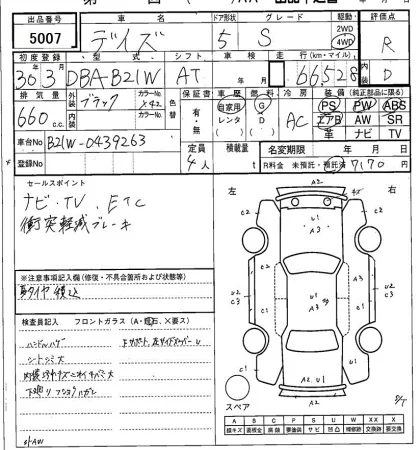 出品番号 車名 ドア形状 グレード 駆動 評価点
5007 デイズ 5 S 2WD 4WD R
初度登録 型式 シフト 車検 走行(km・マイル) 内装
30年3月 DBA-B21W AT 年 月 66528 D
排気量 外装 ブラック カラーNo. X42 色替 保証書 車歴 燃料 冷房 装備(純正部品に限る)
660 c.c. 内装 カラーNo. 自家用 G AC PS PW ABS
レンタ D エアB AW SR
革 ナビ TV
車台No B21W-0439263
登録No
定員 4人 積載量 t 名変期限 年 月 日
R料金 未預託・預託済 7170円
セールスポイント
ナビ・TV、ETC
衝突軽減ブレーキ
左 右
A2
U1
A3
C1
C2
U2
C3
A3
C2
C1
U2
C3
A2 U1
C2
スペア
※注意事項記入欄(修復・不具合箇所および状態等)
夏タイヤ積込
検査員記入 フロントガラス(A・飛石・X要ス)
ハンドルハゲ
シートシミ大
A B C P S U W XX X
線キズ 要板金 腐蝕 要塗装 サビ 凹凸 補修跡 交換跡 要交換